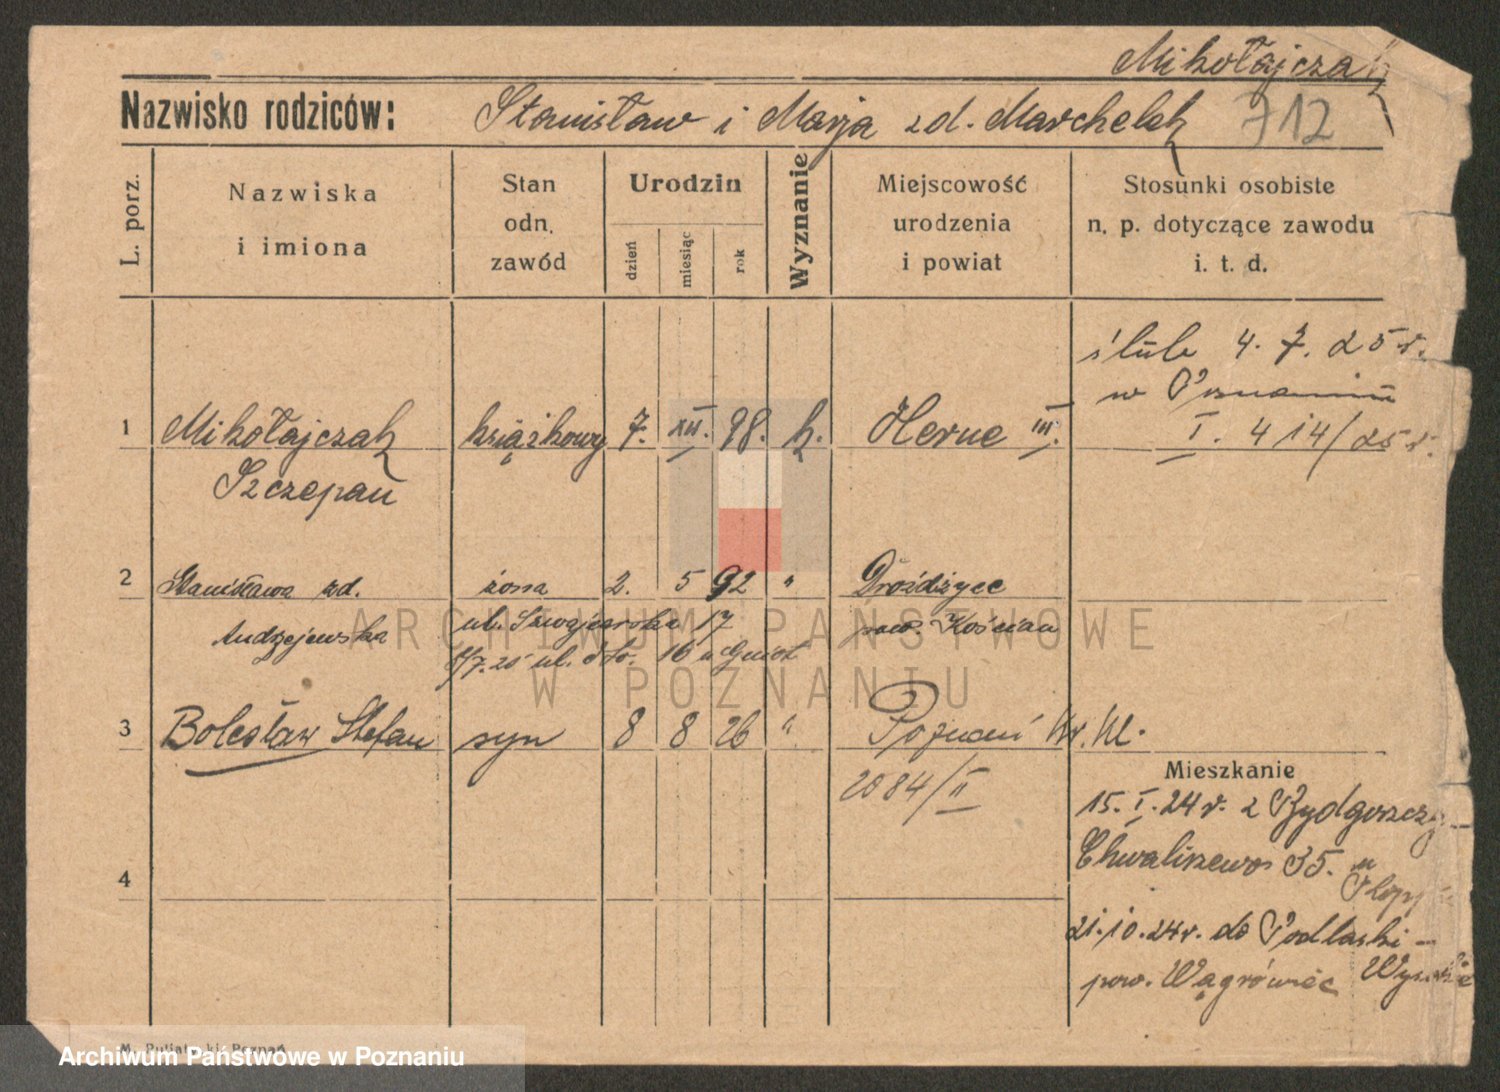 Mikołajczak
Nazwisko rodziców: Stanisław i Marja zd. Marchelek 712
L. porz.
Nazwiska
i imiona
Stan
odn.
zawód
Urodzin
dzień
miesiąc
rok
Wyznanie
Miejscowość
urodzenia
i powiat
Stosunki osobiste
n. p. dotyczące zawodu
i. t. d.
ślub 4. 7. 25 r.
w Poznaniu
I. 414/25 r.
1 Mikołajczak książkowy 7. XII. 98. k. Herne III.
Szczepan
2 Stanisława zd. żona 2. 5 92 " Drożdżyce
Andrzejewska ul. Szwajcarska 17 pow. Kościan
ul. dto. 16 u
3 Bolesław Stefan syn 8 8 26 " Poznań Kr. Ul.
2084/II
Mieszkanie
15. I. 24 r. z Bydgoszczy
Chwaliszewo 35. u
4
21.10.24 r. do Podlaski-
pow. Wągrówiec Wysokie
ARCHIWUM PAŃSTWOWE
W POZNANIU
M. Poznań
Archiwum Państwowe w Poznaniu